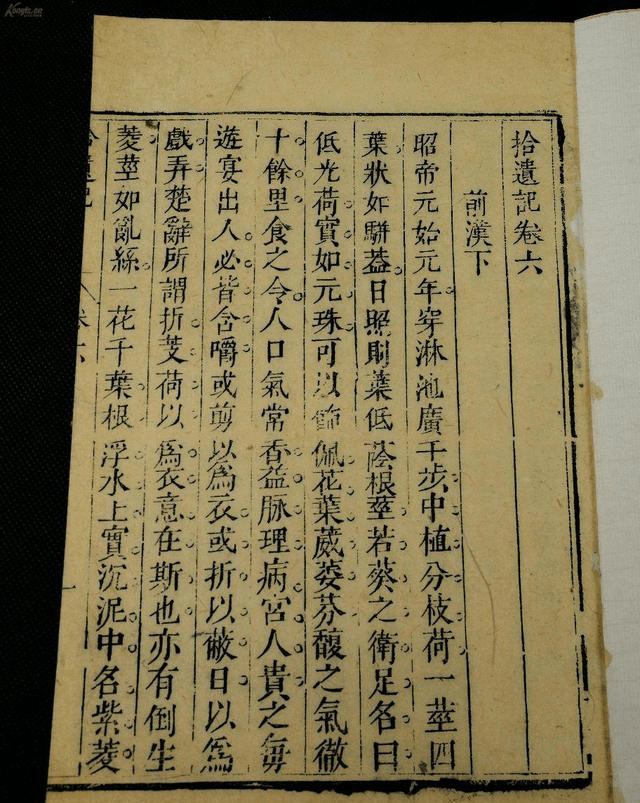 拾遺記卷六
前漢下
昭帝元始元年穿淋池廣千步中植分枝荷一莖四
葉狀如駢葢日照則葉低蔭根莖若葵之衛足名曰
低光荷實如元珠可以飾佩花葉葳萎芬馥之氣徹
十餘里食之令人口氣常香益脉理病宮人貴之每
遊宴出入必皆含嚼或剪以爲衣或折以蔽日以爲
戲弄楚辭所謂折芰荷以爲衣意在斯也亦有倒生
菱莖如亂絲一花千葉根浮水上實沉泥中名紫菱
拾遺記
卷六
一
Kongfz.cn